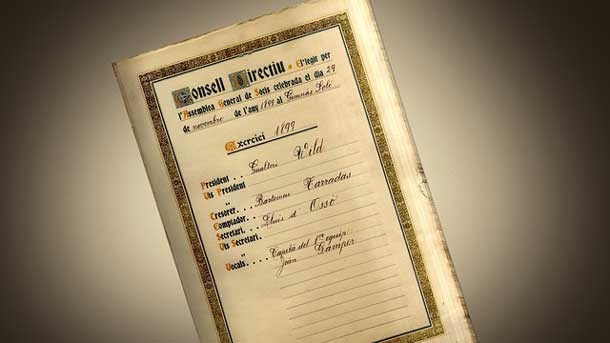 Consell Directiu - Elegit per
l'Assemblea General de Socis celebrada el dia 29
de novembre de l'any 1899 al Gimnàs Solé
Exercici 1899
President . . . Gualteri Wild
Vis President
"
Tresorer. . . . Bartomeu Tarradas
Comptador. . .
Secretari. . . . Lluis d' Ossó
Vis Secretari.
" Capità del 1er equip:
Vocals. . . . Joan Gamper